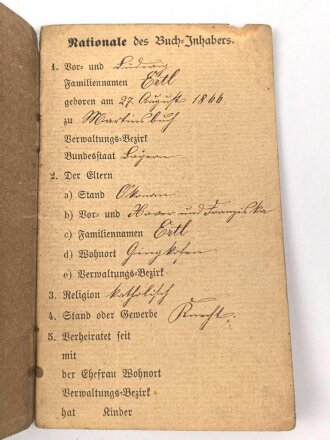 Nationale des Buch-Inhabers.
1. Vor- und Ludwig
Familiennamen Ertl
geboren am 27. August 1866
zu Martinsbuch
Verwaltungs-Bezirk
Bundesstaat Bayern
2. Der Eltern
a) Stand Ökonom
b) Vor- und Xaver und Franziska
c) Familiennamen Ertl
d) Wohnort Gingkofen
e) Verwaltungs-Bezirk
3. Religion katholisch
4. Stand oder Gewerbe Knecht.
5. Verheiratet seit
mit
der Ehefrau Wohnort
Verwaltungs-Bezirk
hat Kinder